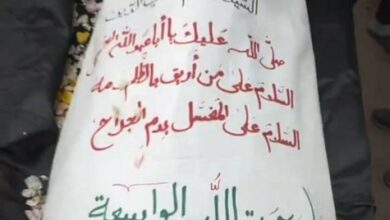 صلّى الله عليك يا أبا عبد الله
السلام على من أريق بالظلم دمه
السلام على المغتسل بدم الجراح
رحمة الله الواسعة